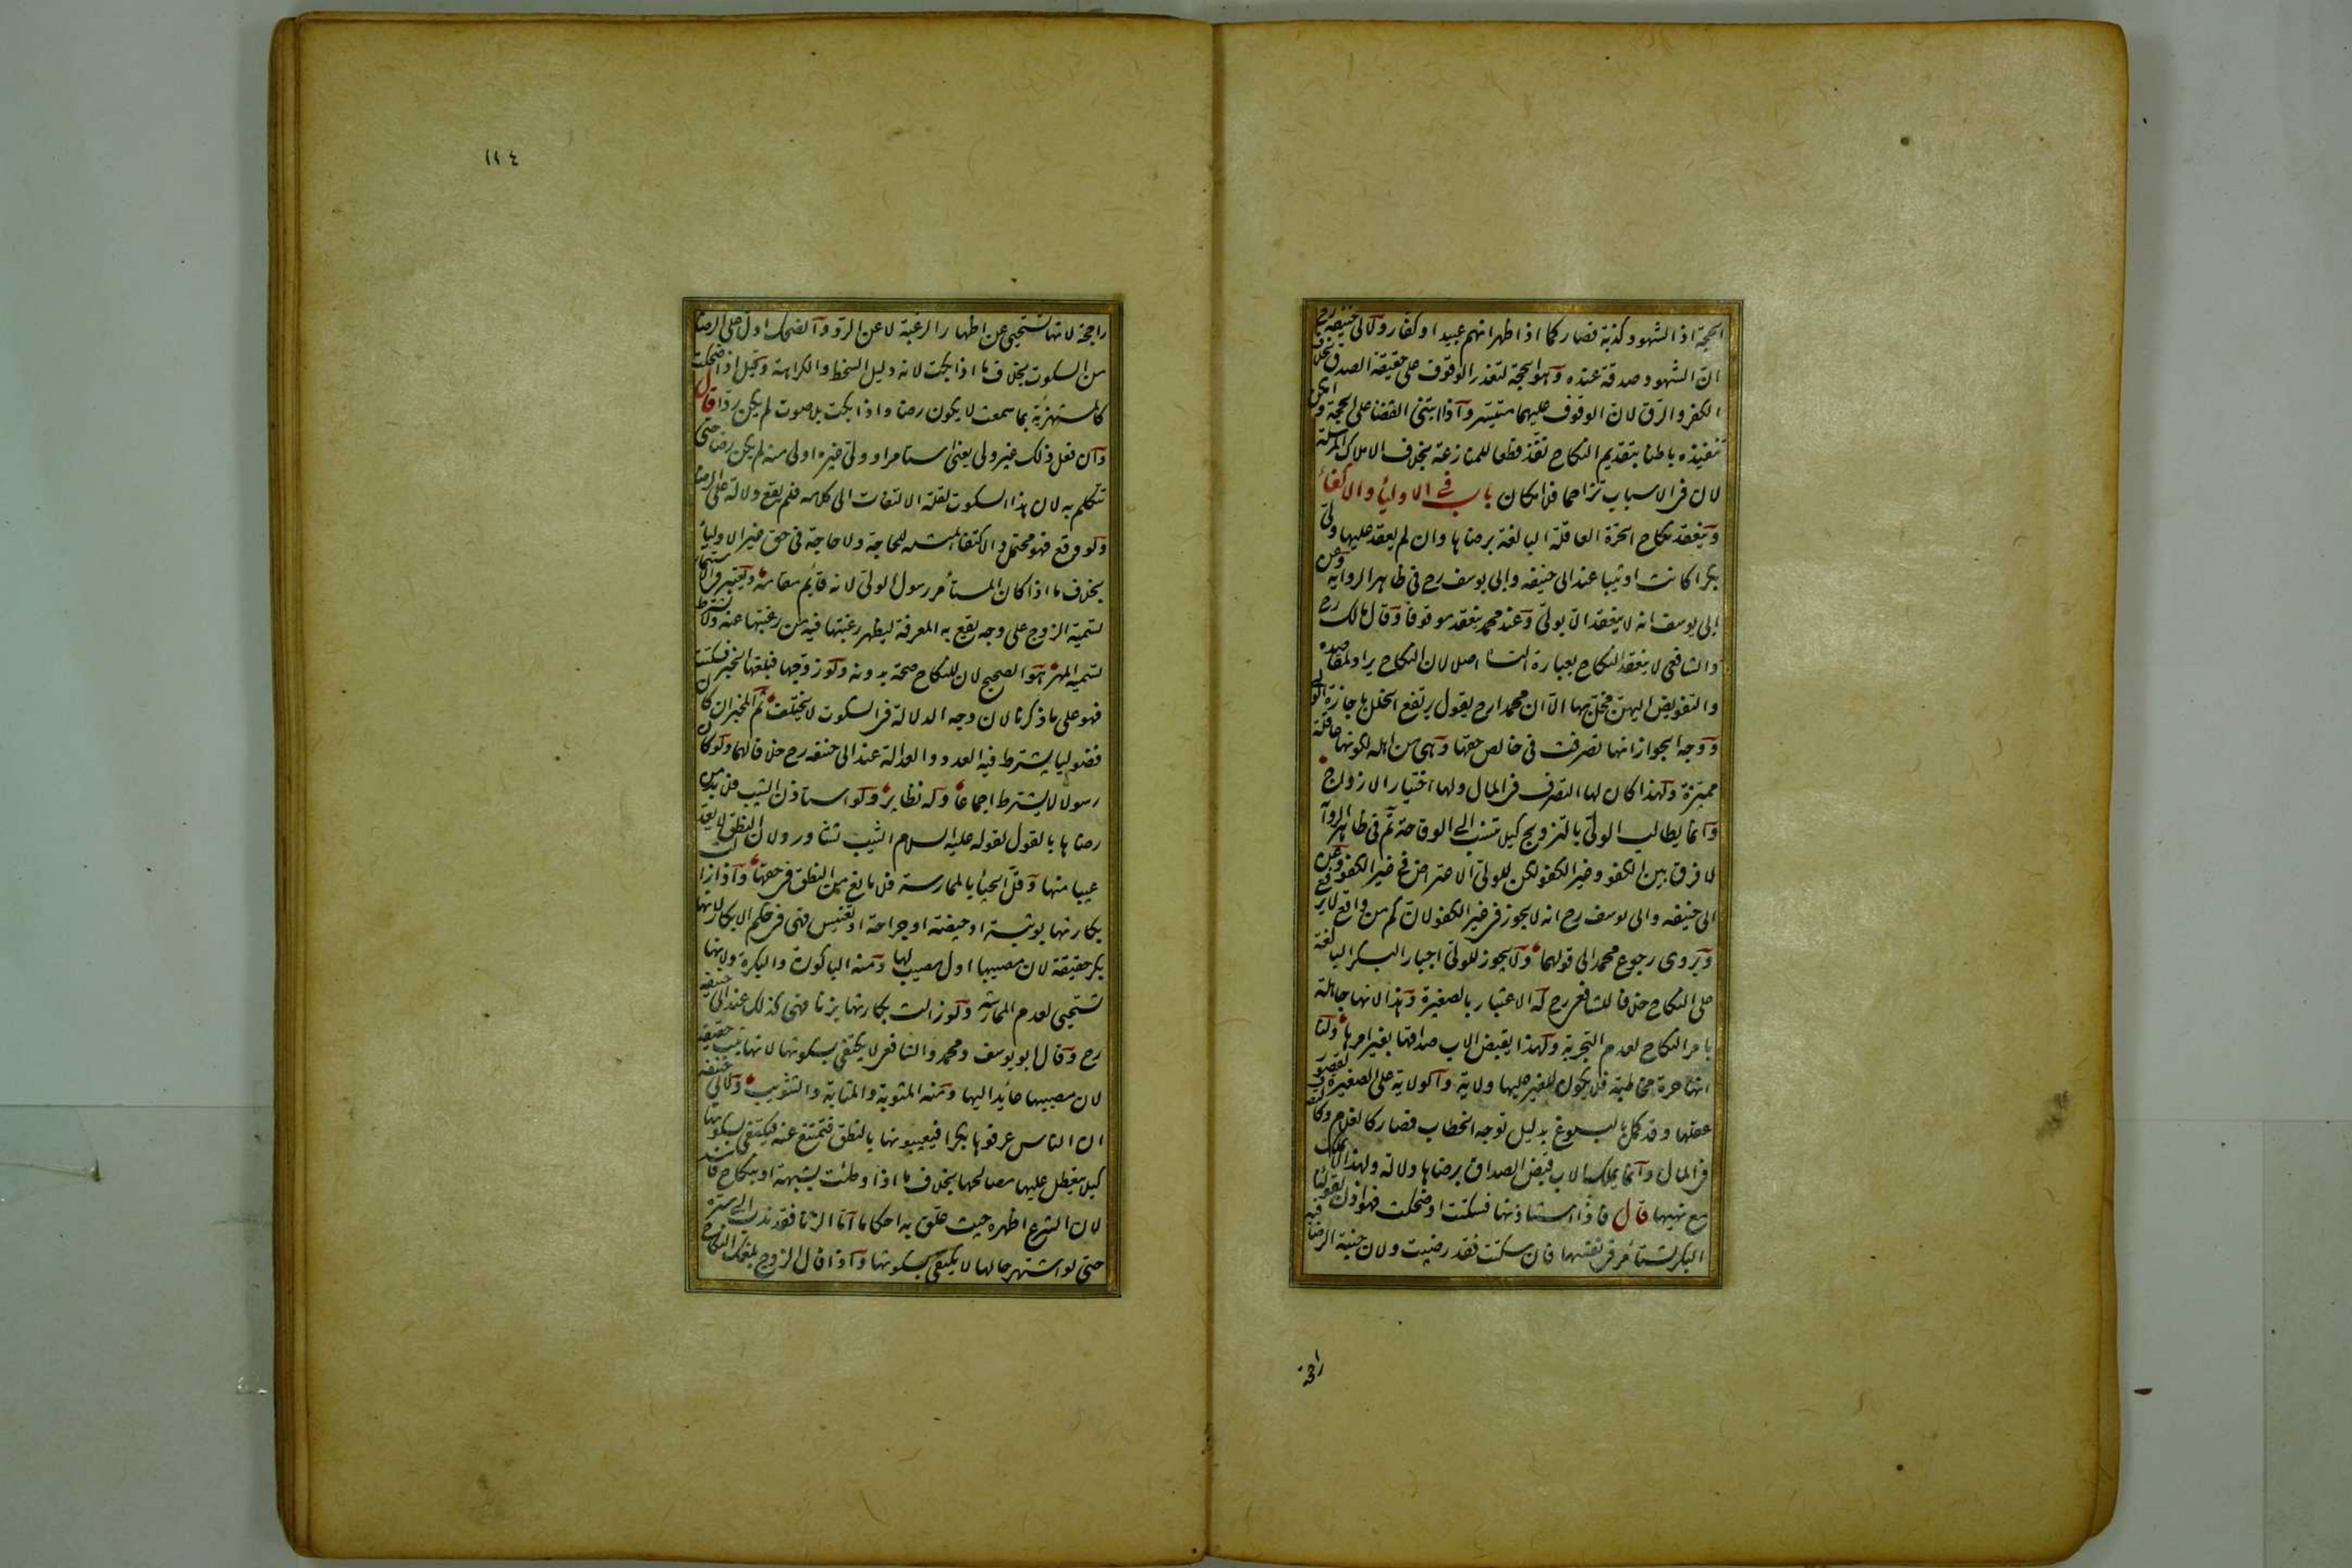 الحجة اذ الشهود كذبة فصار كما اذا ظهر انهم عبيد او كفار ولابى حنيفه رح
ان الشهود صدقة عنده وهو الحجة لتعذر الوقوف على حقيقة الصدق بخلاف
الكفر والرق لان الوقوف عليهما متيسر واذا ابتنى القضا على الحجة وامكن
تنفيذه باطنا بتقديم النكاح نفذ قطعا للمنازعة بخلاف الاملاك المرسلة
لان فى الاسباب تزاحما فلا امكان باب فى الاولياء والاكفاء
وينعقد نكاح الحرة العاقلة البالغة برضاها وان لم يعقد عليها ولى
بكرا كانت او ثيبا عند ابى حنيفه وابى يوسف رح فى ظاهر الرواية وعن
ابى يوسف انه لا ينعقد الا بولى وعند محمد ينعقد موقوفا وقال مالك رح
والشافعى لا ينعقد النكاح بعبارة النساء اصلا لان النكاح يراد لمقاصده
والتفويض اليهن مخل بها الا ان محمدا رح يقول يرتفع الخلل باجازة الولى
ووجه الجواز انها تصرفت فى خالص حقها وهى من اهله لكونها عاقلة
مميزة ولهذا كان لها التصرف فى المال ولها اختيار الازواج
وانما يطالب الولى بالتزويج كيلا تنسب الى الوقاحة ثم فى ظاهر الروآ
لا فرق بين الكفو وغير الكفو لكن للولى الاعتراض فى غير الكفو وعن
ابى حنيفه وابى يوسف رح انه لا يجوز فى غير الكفو لان كم من واقع لا يرفع
ويروى رجوع محمد الى قولهما ولا يجوز للولى اجبار البكر البالغة
على النكاح خلافا للشافعى رح له الاعتبار بالصغيرة وهذا لانها جاهلة
بامر النكاح لعدم التجربة ولهذا يقبض الاب صداقها بغير امرها ولنا
انها حرة مخاطبة فلا يكون للغير عليها ولاية والولاية على الصغيرة لقصور
عقلها وقد كمل بالبلوغ بدليل توجه الخطاب فصار كالغلام وكالتصرف
فى المال وانما يملك الاب قبض الصداق برضاها دلالة ولهذا لا يملك
مع نهيها قال فاذا استاذنها فسكتت او ضحكت فهو اذن لقولنا
البكر تستأمر فى نفسها فان سكتت فقد رضيت ولان جنبة الرضا فيه
راجحة
راجحة لانها تستحيى عن اظهار الرغبة لا عن الرد والضحك ادل على الرضا
من السكوت بخلاف ما اذا بكت لانه دليل السخط والكراهة وقيل اذا ضحكت
كالمستهزئة بما سمعت لا يكون رضا واذا بكت بلا صوت لم يكن ردا قال
وان فعل ذلك غير ولى يعنى استامر او ولى غيره اولى منه لم يكن رضا حتى
تتكلم به لان هذا السكوت لقلة الالتفات الى كلامه فلم يقع دلالة على الرضا
ولو وقع فهو محتمل والاكتفا بمثله للحاجة ولا حاجة فى حق غير الاولياء
بخلاف ما اذا كان المستأمر رسول الولى لانه قائم مقامه ويعتبر فى الاستيمار
تسمية الزوج على وجه يقع به المعرفة ليظهر رغبتها فيه من رغبتها عنه ولا يشترط
تسمية المهر هو الصحيح لان للنكاح صحة بدونه ولو زوجها فبلغها الخبر فسكتت
فهو على ما ذكرنا لان وجه الدلالة فى السكوت لا يختلف ثم المخبر ان كان
فضوليا يشترط فيه العدد والعدالة عند ابى حنيفه رح خلافا لهما ولو كان
رسولا لا يشترط اجماعا وله نظاير ولو استاذن الثيب فلا بد من
رضاها بالقول لقوله عليه السلام الثيب تشاور ولان النطق لا يعد
عيبا منها وقل الحياء بالممارسة فلا مانع من النطق فى حقها واذا زالت
بكارتها بوثبة او حيضة او جراحة او تعنيس فهى فى حكم الابكار لانها
بكر حقيقة لان مصيبها اول مصيب لها ومنه الباكورة والبكرة ولانها
تستحيى لعدم الممارسة ولو زالت بكارتها بزنا فهى كذلك عند ابى حنيفه
رح وقال ابو يوسف ومحمد والشافعى لا يكتفى بسكوتها لانها ثيب حقيقة
لان مصيبها عائد اليها ومنه المثوبة والمثابة والتثويب ولابى حنيفه
ان الناس عرفوها بكرا فيعيبونها بالنطق فتمتنع عنه فيكتفى بسكوتها
كيلا يتعطل عليها مصالحها بخلاف ما اذا وطئت بشبهة او بنكاح فاسد
لان الشرع اظهره حيث علق به احكاما اما الزنا فقد ندب الى ستره
حتى لو اشتهر حالها لا يكتفى بسكوتها واذا قال الزوج بلغك النكاح
١٢٤